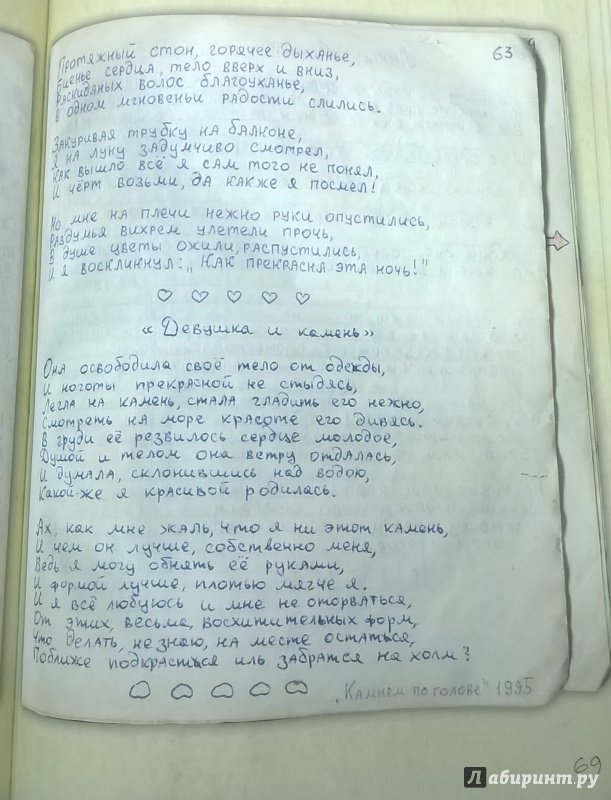 63
Протяжный стон, горячее дыханье,
Биенье сердца, тело вверх и вниз,
Раскиданых волос благоуханье,
В одном мгновеньи радости слились.
Закуривая трубку на балконе,
Я на луну задумчиво смотрел,
Как вышло всё я сам того не понял,
И чёрт возьми, да как же я посмел!
Но мне на плечи нежно руки опустились,
Раздумья вихрем улетели прочь,
В душе цветы ожили, распустились,
И я воскликнул: „Как прекрасна эта ночь!"
«Девушка и камень»
Она освободила своё тело от одежды,
И наготы прекрасной не стыдясь,
Легла на камень, стала гладить его нежно,
Смотреть на море красоте его дивясь.
В груди её резвилось сердце молодое,
Душой и телом она ветру отдалась,
И думала, склонившись над водою,
Какой-же я красивой родилась.
Ах, как мне жаль, что я ни этот камень,
И чем он лучше, собственно меня,
Ведь я могу обнять её руками,
И формой лучше, плотью мягче я.
И я всё любуюсь и мне не оторваться,
От этих, весьма, восхитительных форм,
Что делать, не знаю, на месте остаться,
Поближе подкрасться иль забратся на холм?
„Камнем по голове" 1995
69
Лабиринт.ру